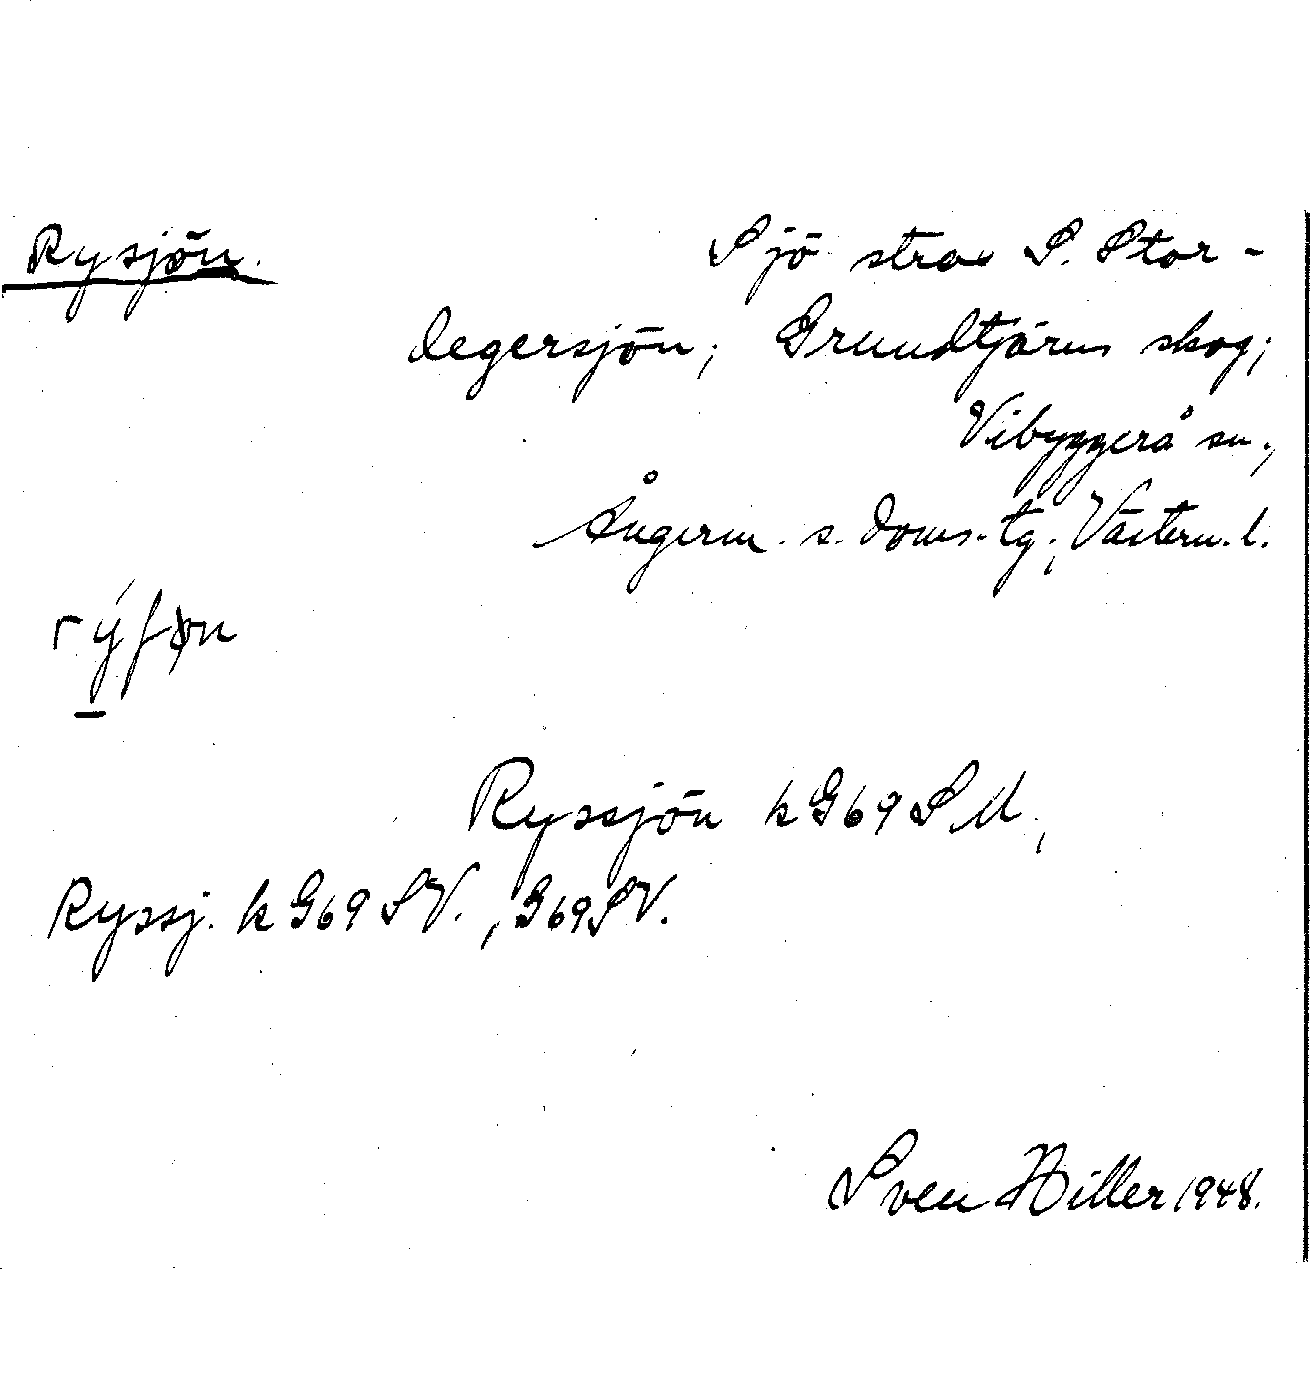 Rysjön.
Sjö strax S. Stor-
degersjön; Grundtjärns skog;
Vibyggerå sn.,
Ångerm. s. doms.tg., Västern. l.
rýʃøn
Ryssjön k G69 SM,
Ryssj. k G69 SV., G69SV.
Sven Hiller 1948.